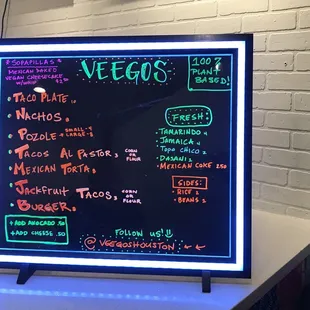 * SOPAPILLAS *
MEXICAN BAKED
VEGAN CHEESECAKE
VEEGOS
100%
PLANT
BASED!
TACO PLATE
NACHOS
POZOLE - SMALL - LARGE
TACOS AL PASTOR CORN OR FLOUR
MEXICAN TORTA
JACKFRUIT TACOS CORN OR FLOUR
BURGER
+ ADD AVOCADO .50
+ ADD CHEESE .50
FRESH:
TAMARINDO
JAMAICA
TOPO CHICO 2
DASANI 2
MEXICAN COKE 2.50
SIDES:
RICE 2
BEANS 2
FOLLOW US!!
@VEEGOSHOUSTON